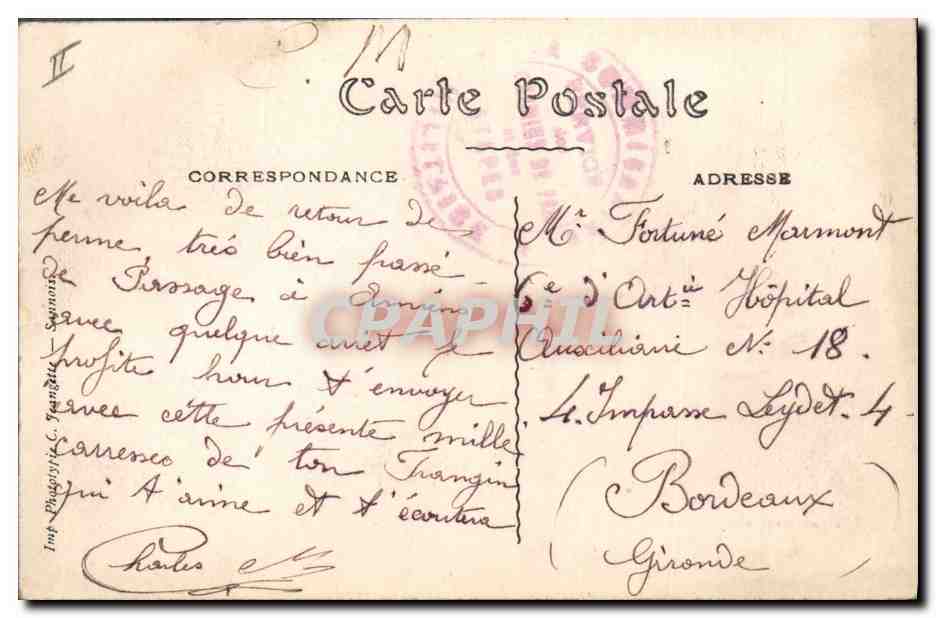 II
M
Carte Postale
CORRESPONDANCE
Me voila de retour de
perme très bien passé
de Passage à Amiens
avec quelque arret je
profite pour t'envoyer
avec cette présente mille
caresses de ton Frangin
qui t'aime et t'écoutera
Charles M
ADRESSE
Mr Fortuné Marmont
6e d'Artie Hôpital
Auxiliaire No 18.
4. Impasse Leydet. 4
(Bordeaux)
(Gironde)
CPAPHIL
Imp. Phototypie C.